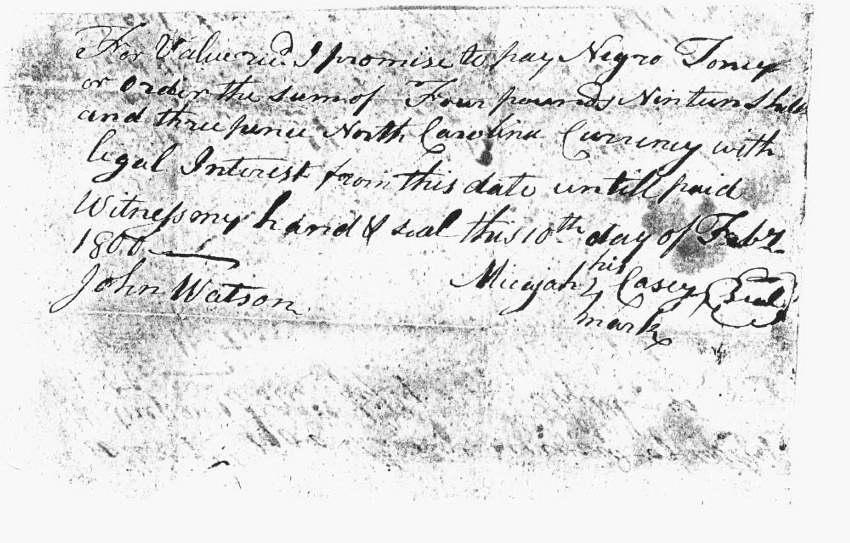 For Value recd I promise to pay Negro Toney
or order the sum of Four pounds Ninteen Shills
and three pence North Carolina Currency with
legal Interest from this date untill paid
Witness my hand & seal this 10th day of Feby
1800
his
John Watson Micajah Casey Seal
mark